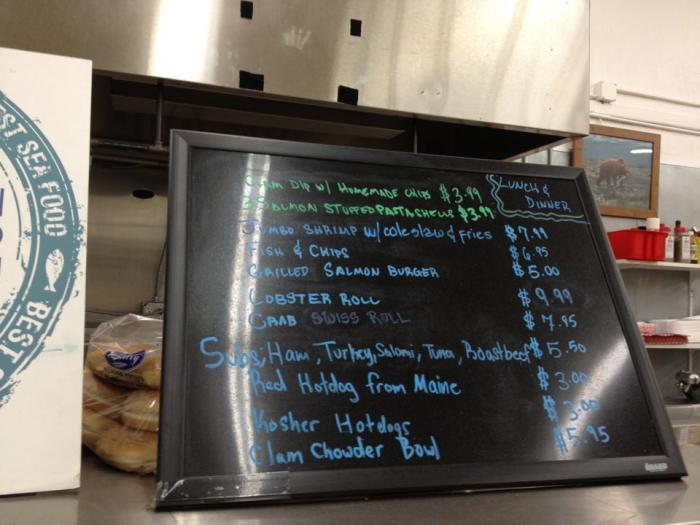 ST SEA FOOD
BEST
LUNCH &
DINNER
CLAM DIP W/ HOMEMADE CHIPS $3.99
3 SALMON STUFFED PASTA SHELLS $3.99
JUMBO SHRIMP w/ coleslaw & FRIES $7.99
FISH & CHIPS $6.95
GRILLED SALMON BURGER $5.00
LOBSTER ROLL $9.99
CRAB SWISS ROLL $7.95
Subs; Ham, Turkey, Salami, Tuna, Roastbeef $5.50
Red Hotdog from Maine $3.00
Kosher Hotdogs $3.00
Clam Chowder Bowl $5.95